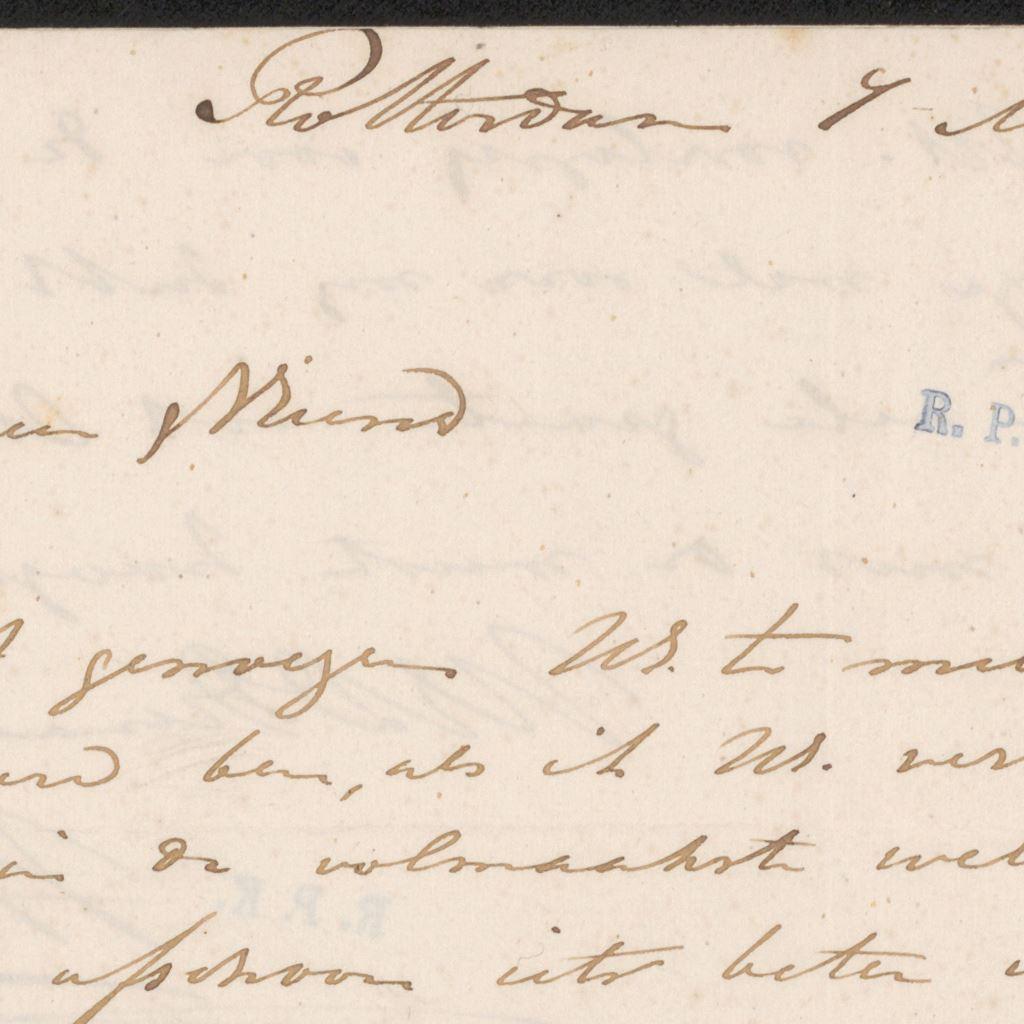 Rotterdam 7
Vriend
R. P.
genoegen UE. te
ben, als ik UE. ver
de volmaakste wel
ofschoon iets beter